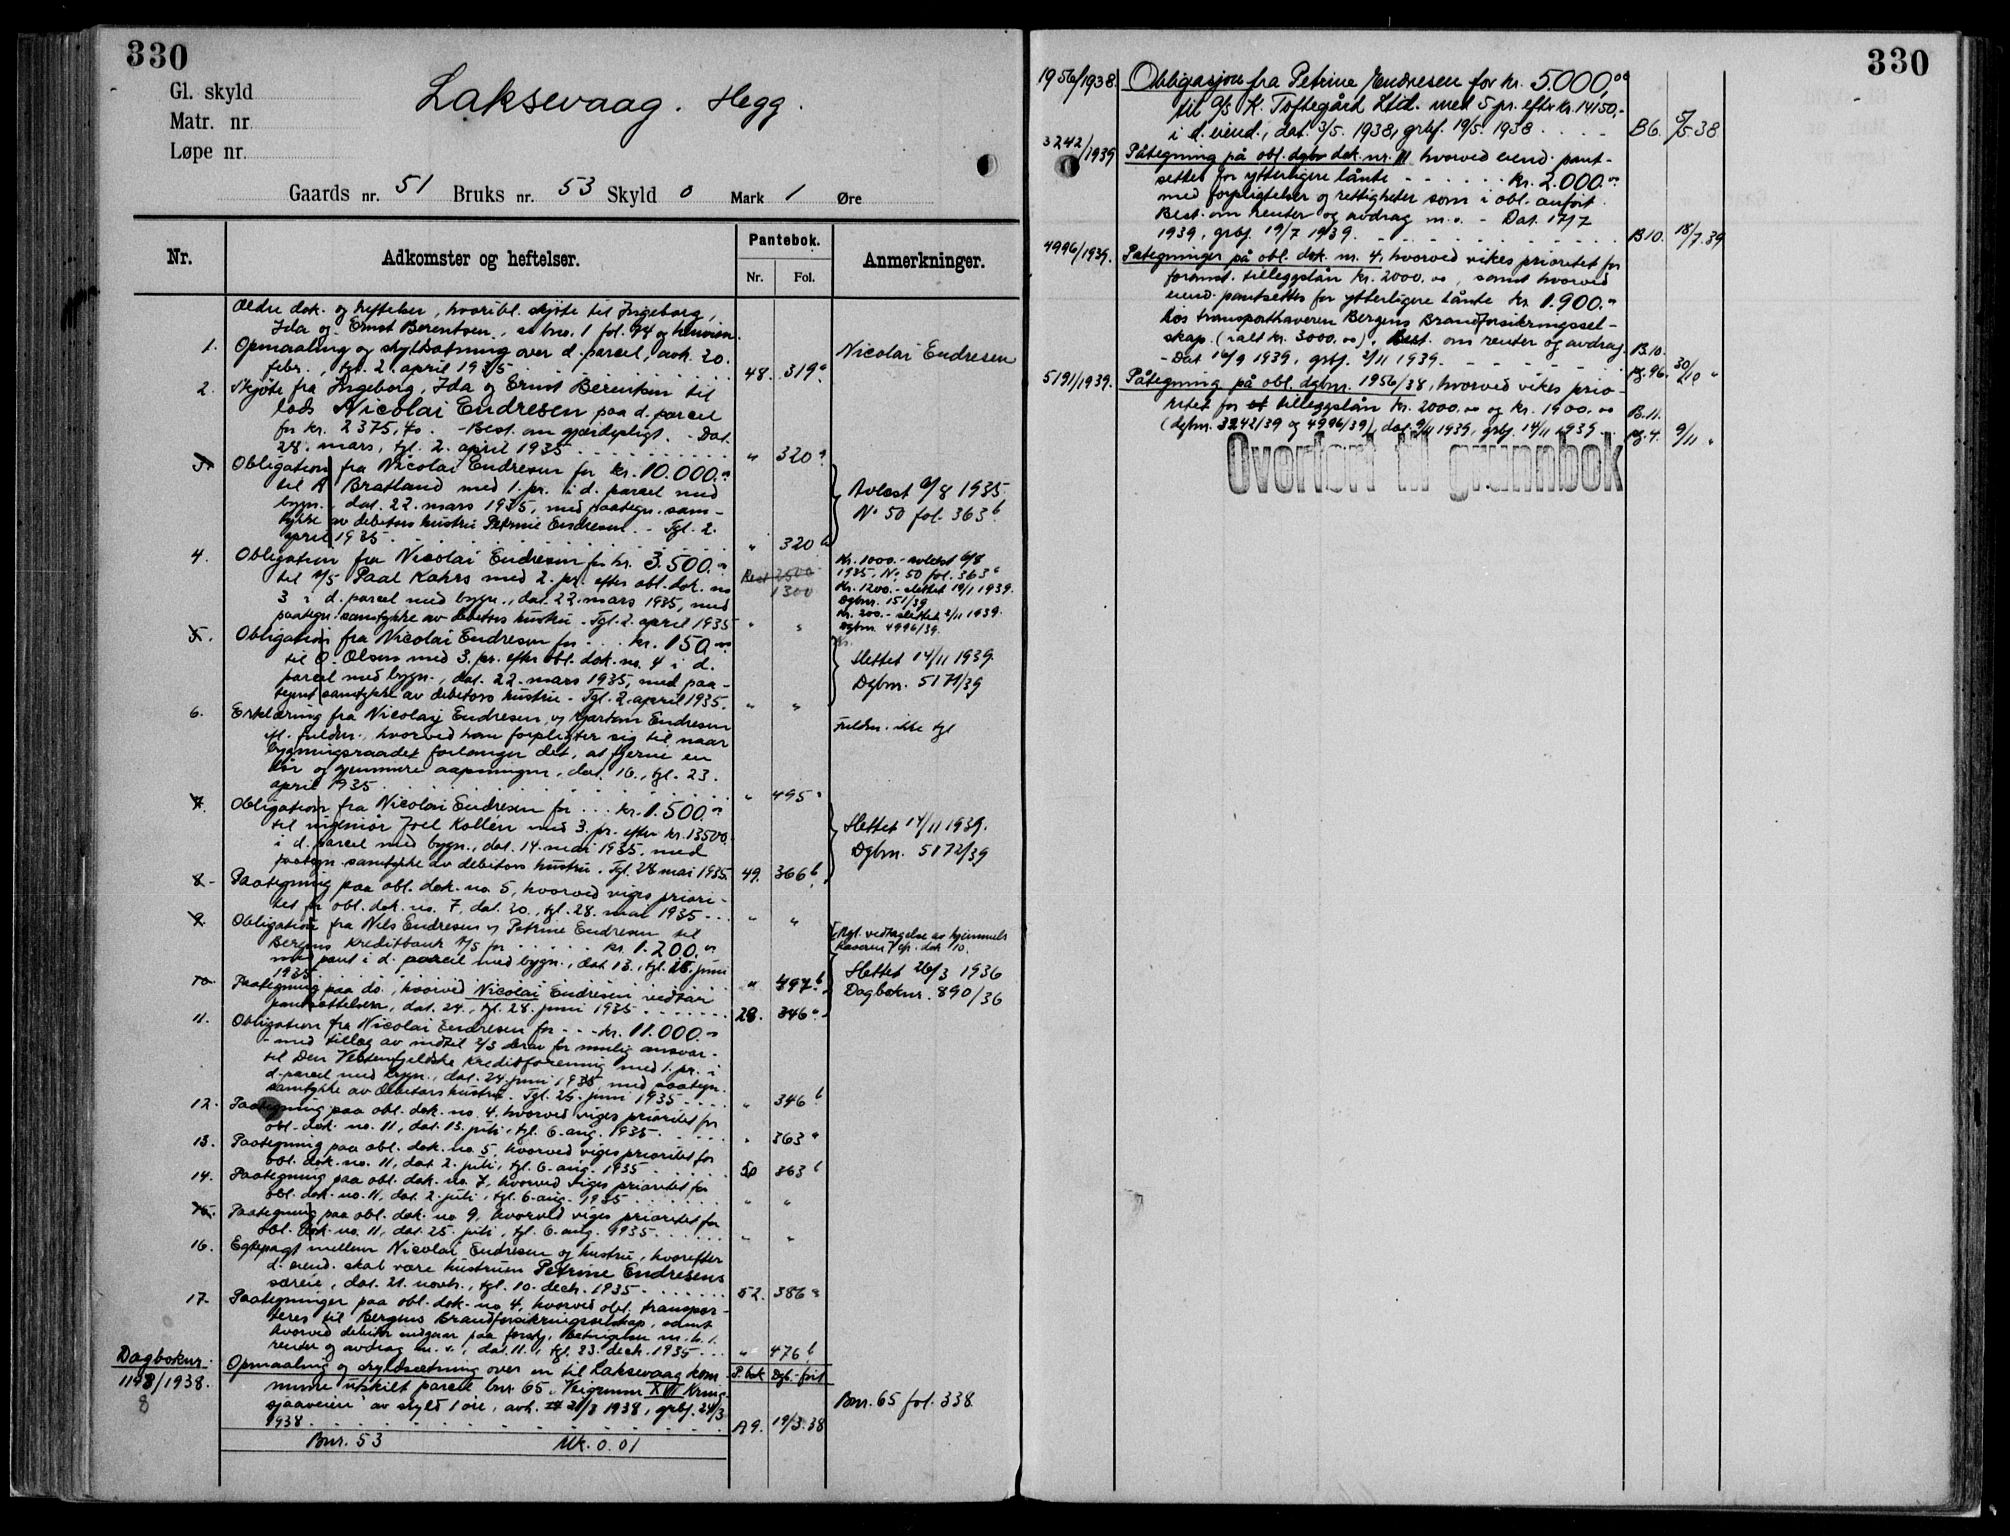 330
Gl. skyld
Matr. nr
Løpe nr.
Laksevaag. Hegg.
Gaards nr. 51 Bruks nr. 53 Skyld 0 Mark 1 Øre
Nr. Adkomster og heftelser. Pantebok. Nr. Fol. Anmerkninger.
Ældre dok. og heftelser, hvoribl. skjøte til Ingeborg,
Ida og Ernst Berentsen, se bno. 1 fol. 94 og henviser.
1. Opmaaling og skyldsætning over d. parcel, avh. 20. Nicolai Endresen
febr., tgl. 2. april 1935 48. 319a
2. Skjøte fra Ingeborg, Ida og Ernst Berentsen til
lods Nicolai Endresen paa d. parcel
for kr. 2375,40. - Best. om gjærdepligt. - Dat.
28. mars, tgl. 2. april 1935 " 320a
3. Obligation fra Nicolai Endresen for kr. 10.000.00
til A Bratland med 1. pr. i d. parcel med Avlest 6/8 1935
bygn., dat. 22. mars 1935, med paategn. sam- No 50 fol. 363b
tykke av debitors hustru Petrine Endresen. - Tgl. 2.
april 1935 " 320b
4. Obligation fra Nicolai Endresen for kr. 3.500.00 Kr. 1000.- avlest 6/8
til A/S Paal Kahrs med 2. pr. efter obl. dok. no Rest 2500 1935. No. 50 fol. 363a
3 i d. parcel med bygn., dat. 22. mars 1935, med 1300 Kr. 1200.- slettet 19/1 1939.
Dgbnr. 151/39
paategn. samtykke av debitors hustru. Tgl. 2. april 1935 " " Kr. 200.- slettet 2/11 1939.
Dgbnr. 4996/39.
5. Obligation fra Nicolai Endresen for kr. 150.00
til O. Olsen med 3. pr. efter obl. dok. no. 4 i d. Slettet 14/11 1939.
parcel med bygn., dat. 22. mars 1935, med paa- Dgbnr. 5171/39
tegnet samtykke av debitors hustru. Tgl. 2. april 1935. " "
6. Erklæring fra Nicolai Endresen, v/ Kjartan Endresen
ifl. fuldm., hvorved han forpligter sig til, naar Fuldm. ikke tgl
bygningsraadet forlanger det, at fjerne en
dør og gjenmure aapningen, dat. 16., tgl. 23.
april 1935 " 495a
7. Obligation fra Nicolai Endresen for kr. 1.500.00
til ingeniør Joel Kollén med 3. pr. efter kr. 13500.- Slettet 14/11 1939.
i d. parcel med bygn., dat. 14. mai 1935, med Dgbnr. 5172/39
paategn. samtykke av debitors hustru. Tgl. 28 mai 1935 49. 366b
8. Paategning paa obl. dok. no. 5, hvorved viges priori-
tet for obl. dok. no. 7, dat. 20., tgl. 28. mai 1935 " "
9. Obligation fra Nils Endresen og Petrine Endresen til
Bergens Kreditbank A/S for kr. 1.200.00 Mgl. vedtagelse av hjemmels
haveren. Cfr. dok 10.
med pant i d. parcel med bygn., dat 13., tgl. 15. juni
1935 " 497b Slettet 26/3 1936
10. Paategning paa do., hvorved Nicolai Endresen vedtar Dagboknr. 890/36
pantsættelsen, dat. 24., tgl. 28. juni 1935 28. 346a
11. Obligation fra Nicolai Endresen for kr. 11.000.00
- med tillæg av indtil 2/3 derav for mulig ansvar -
til Den Vestenfjeldske Kreditforening med 1. pr. i
d. parcel med bygn., dat. 24. juni 1935, med paategn.
samtykke av debitors hustru. Tgl. 25. juni 1935 " 346b
12. Paategning paa obl. dok. no. 4, hvorved viges prioritet for
obl. dok. no. 11, dat. 13. juli, tgl. 6. aug. 1935 " 363a
13. Paategning paa obl. dok. no. 5, hvorved viges prioritet for
obl. dok. no. 11, dat. 2. juli, tgl. 6. aug. 1935 50 363b
14. Paategning paa obl. dok. no. 7, hvorved viges prioritet for
obl. dok. no. 11, dat. 2. juli, tgl. 6. aug. 1935 " "
15. Paategning paa obl. dok. no. 9, hvorved viges prioritet for
obl. dok. no. 11, dat. 25. juli, tgl. 6. aug. 1935 " "
16. Egtepagt mellem Nicolai Endresen og hustru, hvorefter
d. eiend. skal være hustruen Petrine Endresens
særeie, dat. 21. novbr., tgl. 10. decbr. 1935 52. 386a
17. Paategninger paa obl. dok. no 4, hvorved obl. transpor-
teres til Bergens Brandforsikringsselskap, samt
hvorved debitor indgaar paa forskj. betingelser m. h. t.
renter og avdrag m. v., dat. 11., tgl. 23. decb. 1935 " 476b
Dagboknr. Opmaaling og skyldsætning over en til Laksevaag kom P.bok Dgb.-ført
1148/1938. mune utskilt parcel bnr. 65, Veigrunn XVII Kring-
8 sjaaveien av skyld 1 øre, avh. 21/3 1938, grbf. 24/3 Bnr. 65 fol. 338
1938 A9. 19/3.38
Bnr. 53 Mk. 0.01
330
1956/1938. Obligasjon fra Petrine Endresen for kr. 5.000,00
til A/S K. Toftegård Ltd. med 5 pr. efter kr. 14150,-
i d. eiend., dat. 3/5. 1938, grbf. 19/5. 1938 B6. 5/5-38
3242/1939 Påtegning på obl. dgbr dok. nr. 11 hvorved eiend. pant-
settes for ytterligere lånte kr. 2.000.00
med forpligtelser og rettigheter som i obl. anført.
Best. om renter og avdrag m.v. - Dat. 17/7
1939, grbf. 19/7 1939. B10. 18/7.39
4996/1939. Påtegninger på obl. dok. nr. 4, hvorved vikes prioritet for
forannt. tilleggslån kr. 2000.00, samt hvorved
eiend. pantsettes for ytterligere lånte kr 1.900.00
hos transporthaveren Bergens Brandforsikringssel-
skap. (ialt kr. 3000.00). Best. om renter og avdrag B.10.
- Dat. 16/9 1939, grbf. 2/11 1939. pg. 96. 30/10 "
5191/1939. Påtegning på obl. dgbnr. 1956/38, hvorved vikes prio-
ritet for tilleggslån kr. 2000.00 og kr. 1900.00 B.11.
(dgbnr. 3242/39 og 4996/39), dat 9/11 1939, grbf. 14/11 1939 pg. 4. 9/11 "
Overført til grunnbok